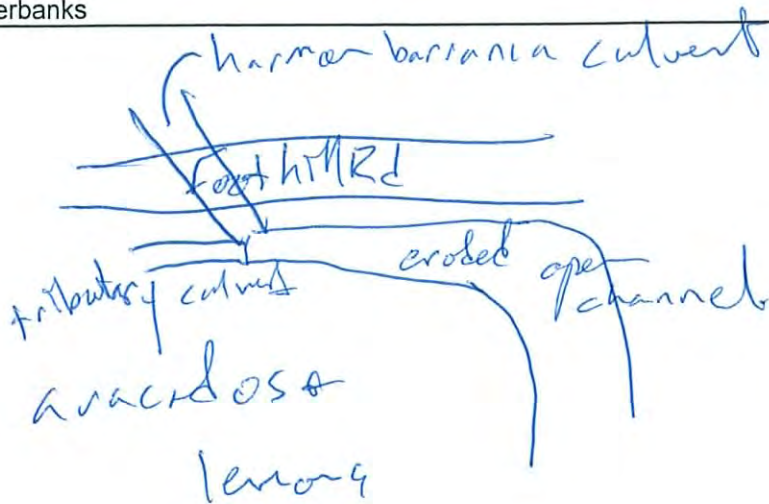 erbanks
harmon barranca culvert
Foothill Rd
eroded open channel
tributary culvert
avacados +
lemons